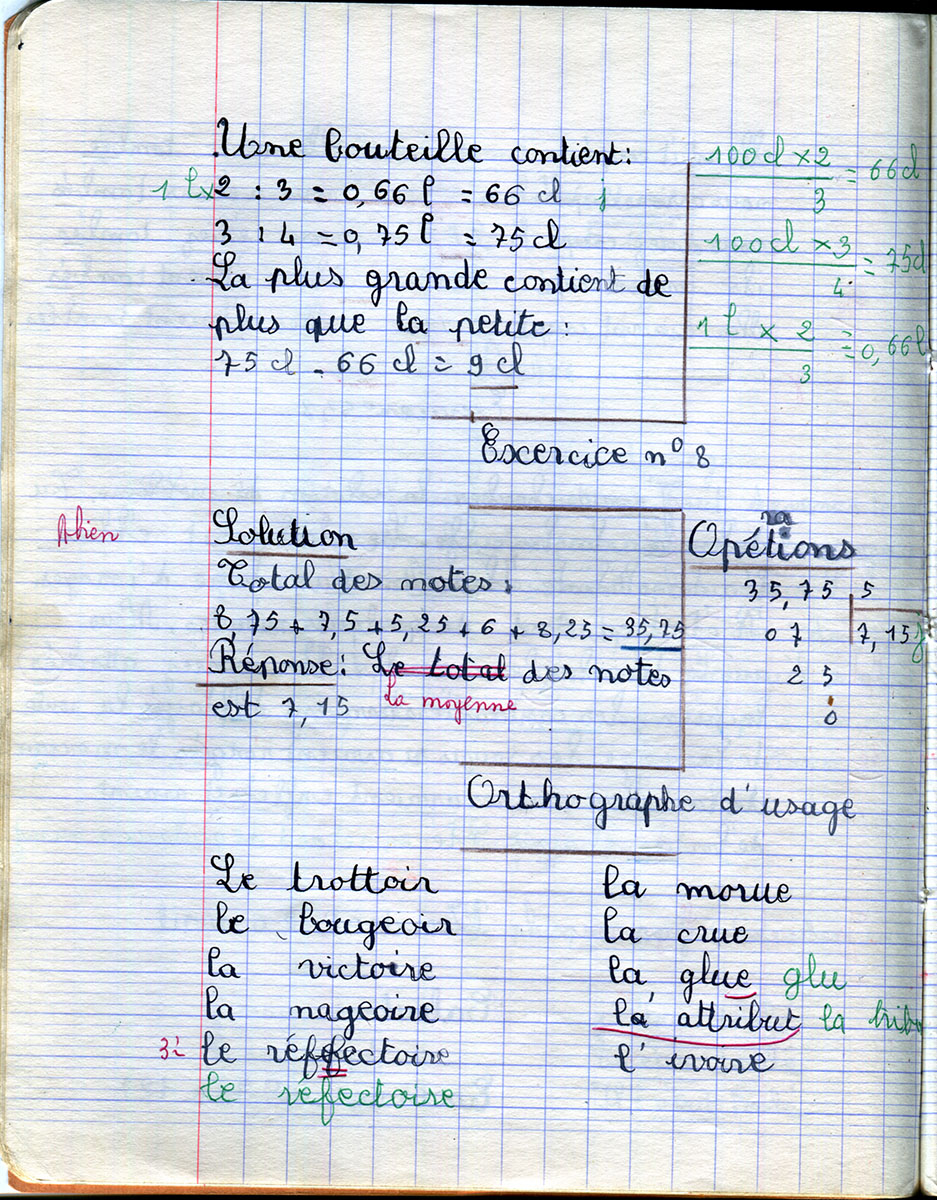 Une bouteille contient:
1 l x 2 : 3 = 0,66 l = 66 cl j
3 : 4 = 0,75 l = 75 cl
La plus grande contient de
plus que la petite:
75 cl - 66 cl = 9 cl
100 cl x 2 / 3 = 66 cl
100 cl x 3 / 4 = 75 cl
1 l x 2 / 3 = 0,66 l
Excercice n° 8
Abien
Solution
Total des notes:
8,75 + 7,5 + 5,25 + 6 + 8,25 = 35,75
Réponse: Le total des notes
la moyenne
est 7,15
ra
Opétions
35,75 5
07 7,15
25
0
Orthographe d'usage
Le trottoir
le bougeoir
la victoire
la nageoire
3i le réffectoire
le réfectoire
la morue
la crue
la glue glu
la attribut la tribu
l'ivoire